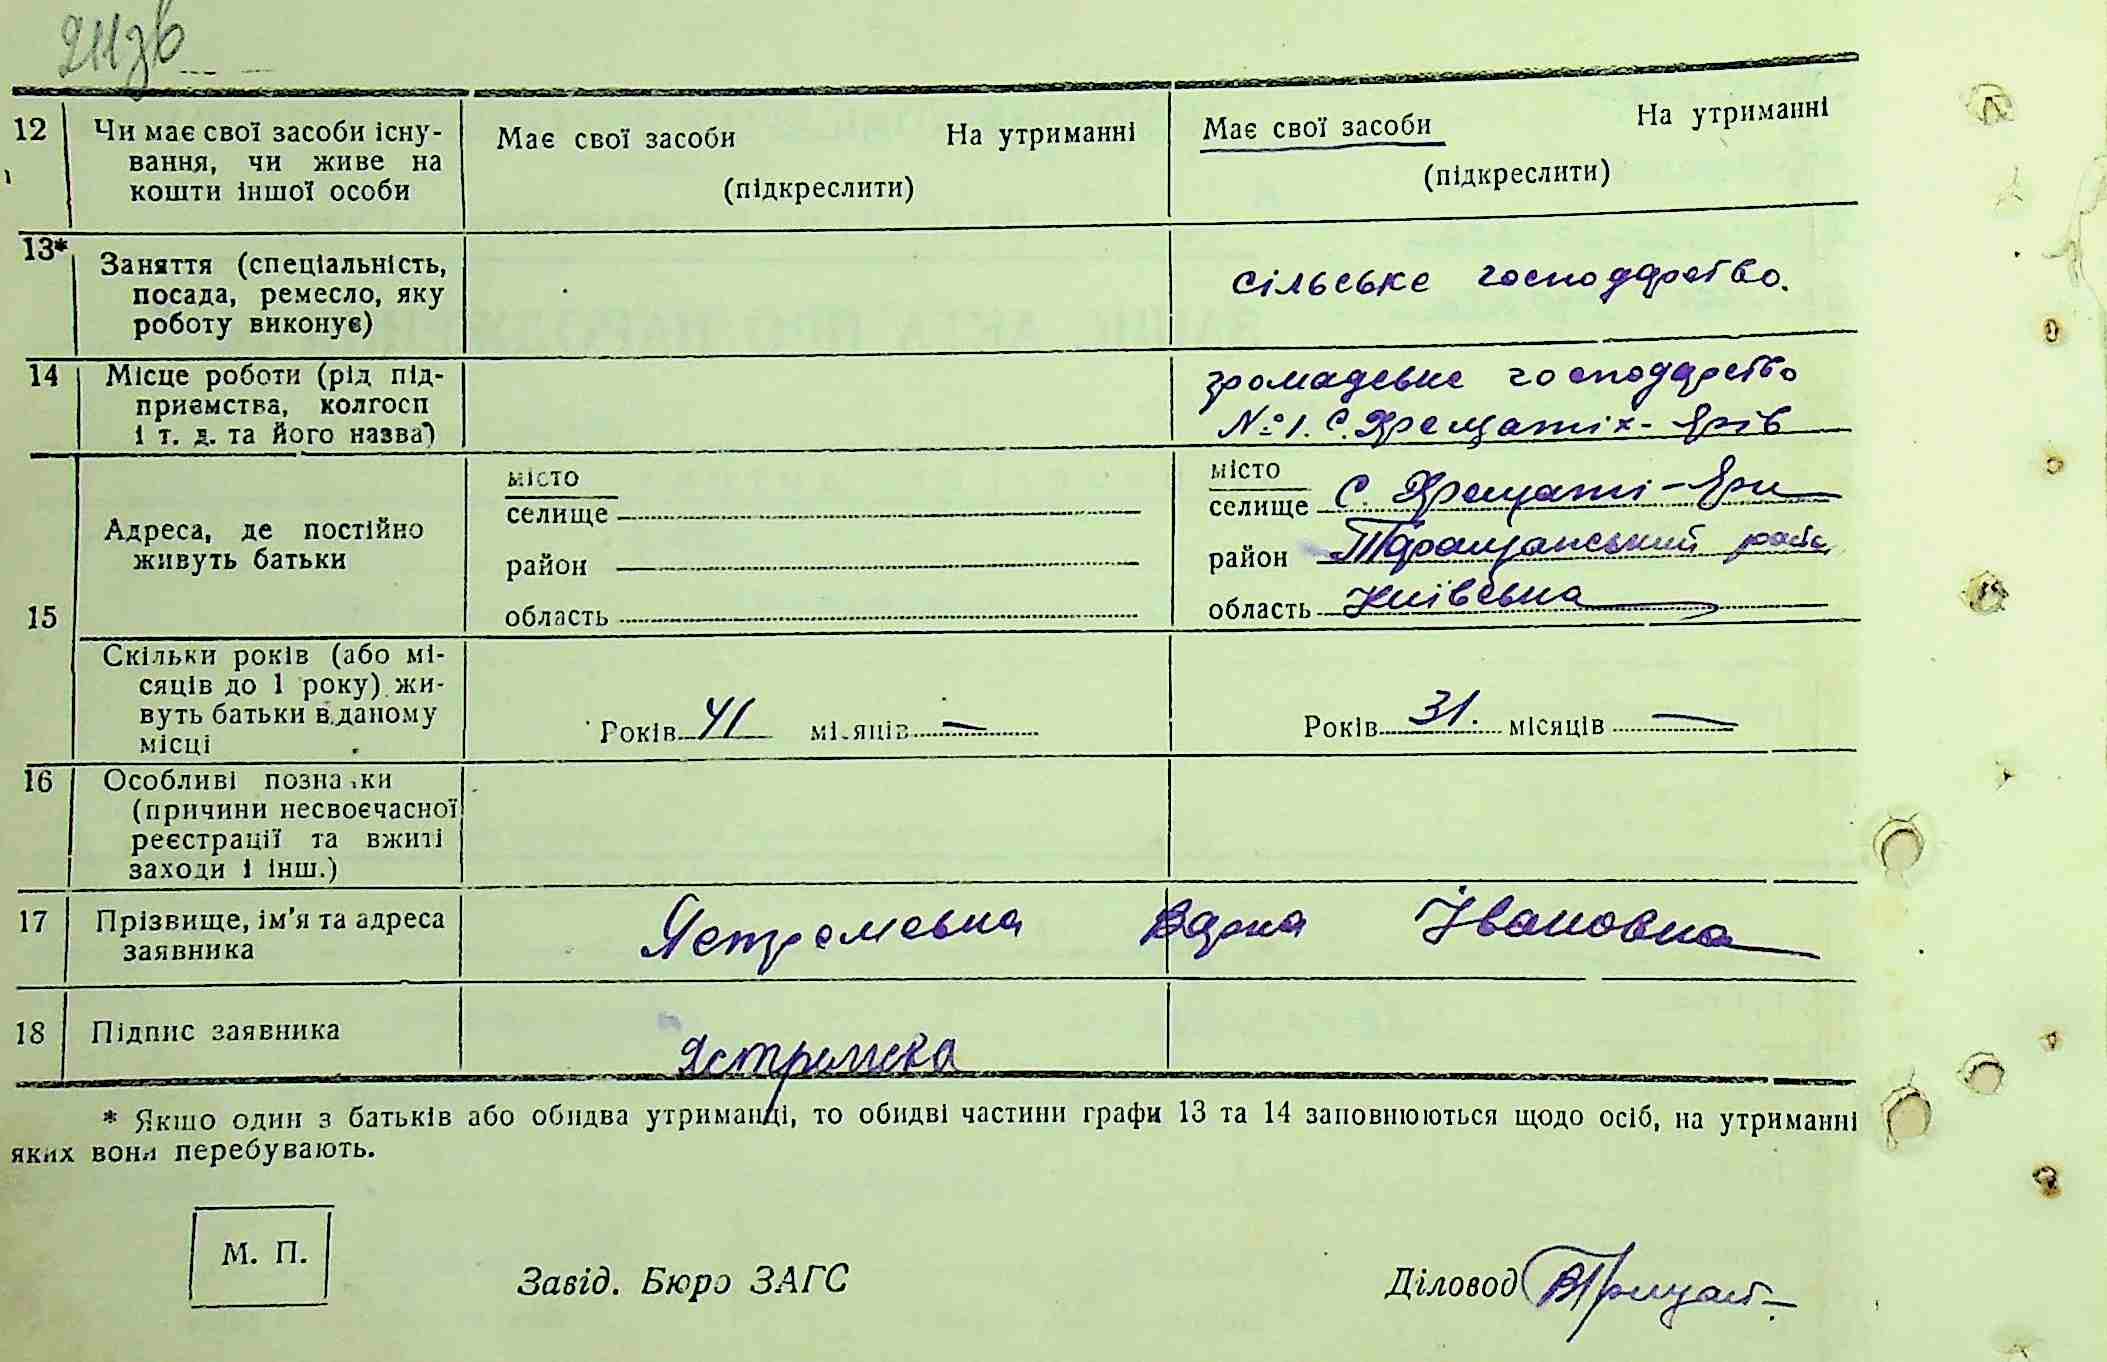 211зв
12 Чи має свої засоби існу-
вання, чи живе на
кошти іншої особи
Має свої засоби На утриманні
(підкреслити)
Має свої засоби На утриманні
(підкреслити)
13* Заняття (спеціальність,
посада, ремесло, яку
роботу виконує)
сільське господарство.
14 Місце роботи (рід під-
приємства, колгосп
і т. д. та його назва)
громадське господарство
№ 1. с. Хрещатіх-Ярів
15 Адреса, де постійно
живуть батьки
місто
селище
район
область
місто
селище с. Хрещаті-Яри
район Таращанський район
область Київська
Скільки років (або мі-
сяців до 1 року) жи-
вуть батьки в даному
місці
Років 41 місяців —
Років 31. місяців —
16 Особливі познаки
(причини несвоєчасної
реєстрації та вжиті
заходи і інш.)
17 Прізвище, ім'я та адреса
заявника
Ястремська Варка Івановна
18 Підпис заявника
Ястремска
* Якшо один з батьків або обидва утриманці, то обидві частини графи 13 та 14 заповнюються щодо осіб, на утриманні
яких вони перебувають.
М. П.
Завід. Бюро ЗАГС
Діловод